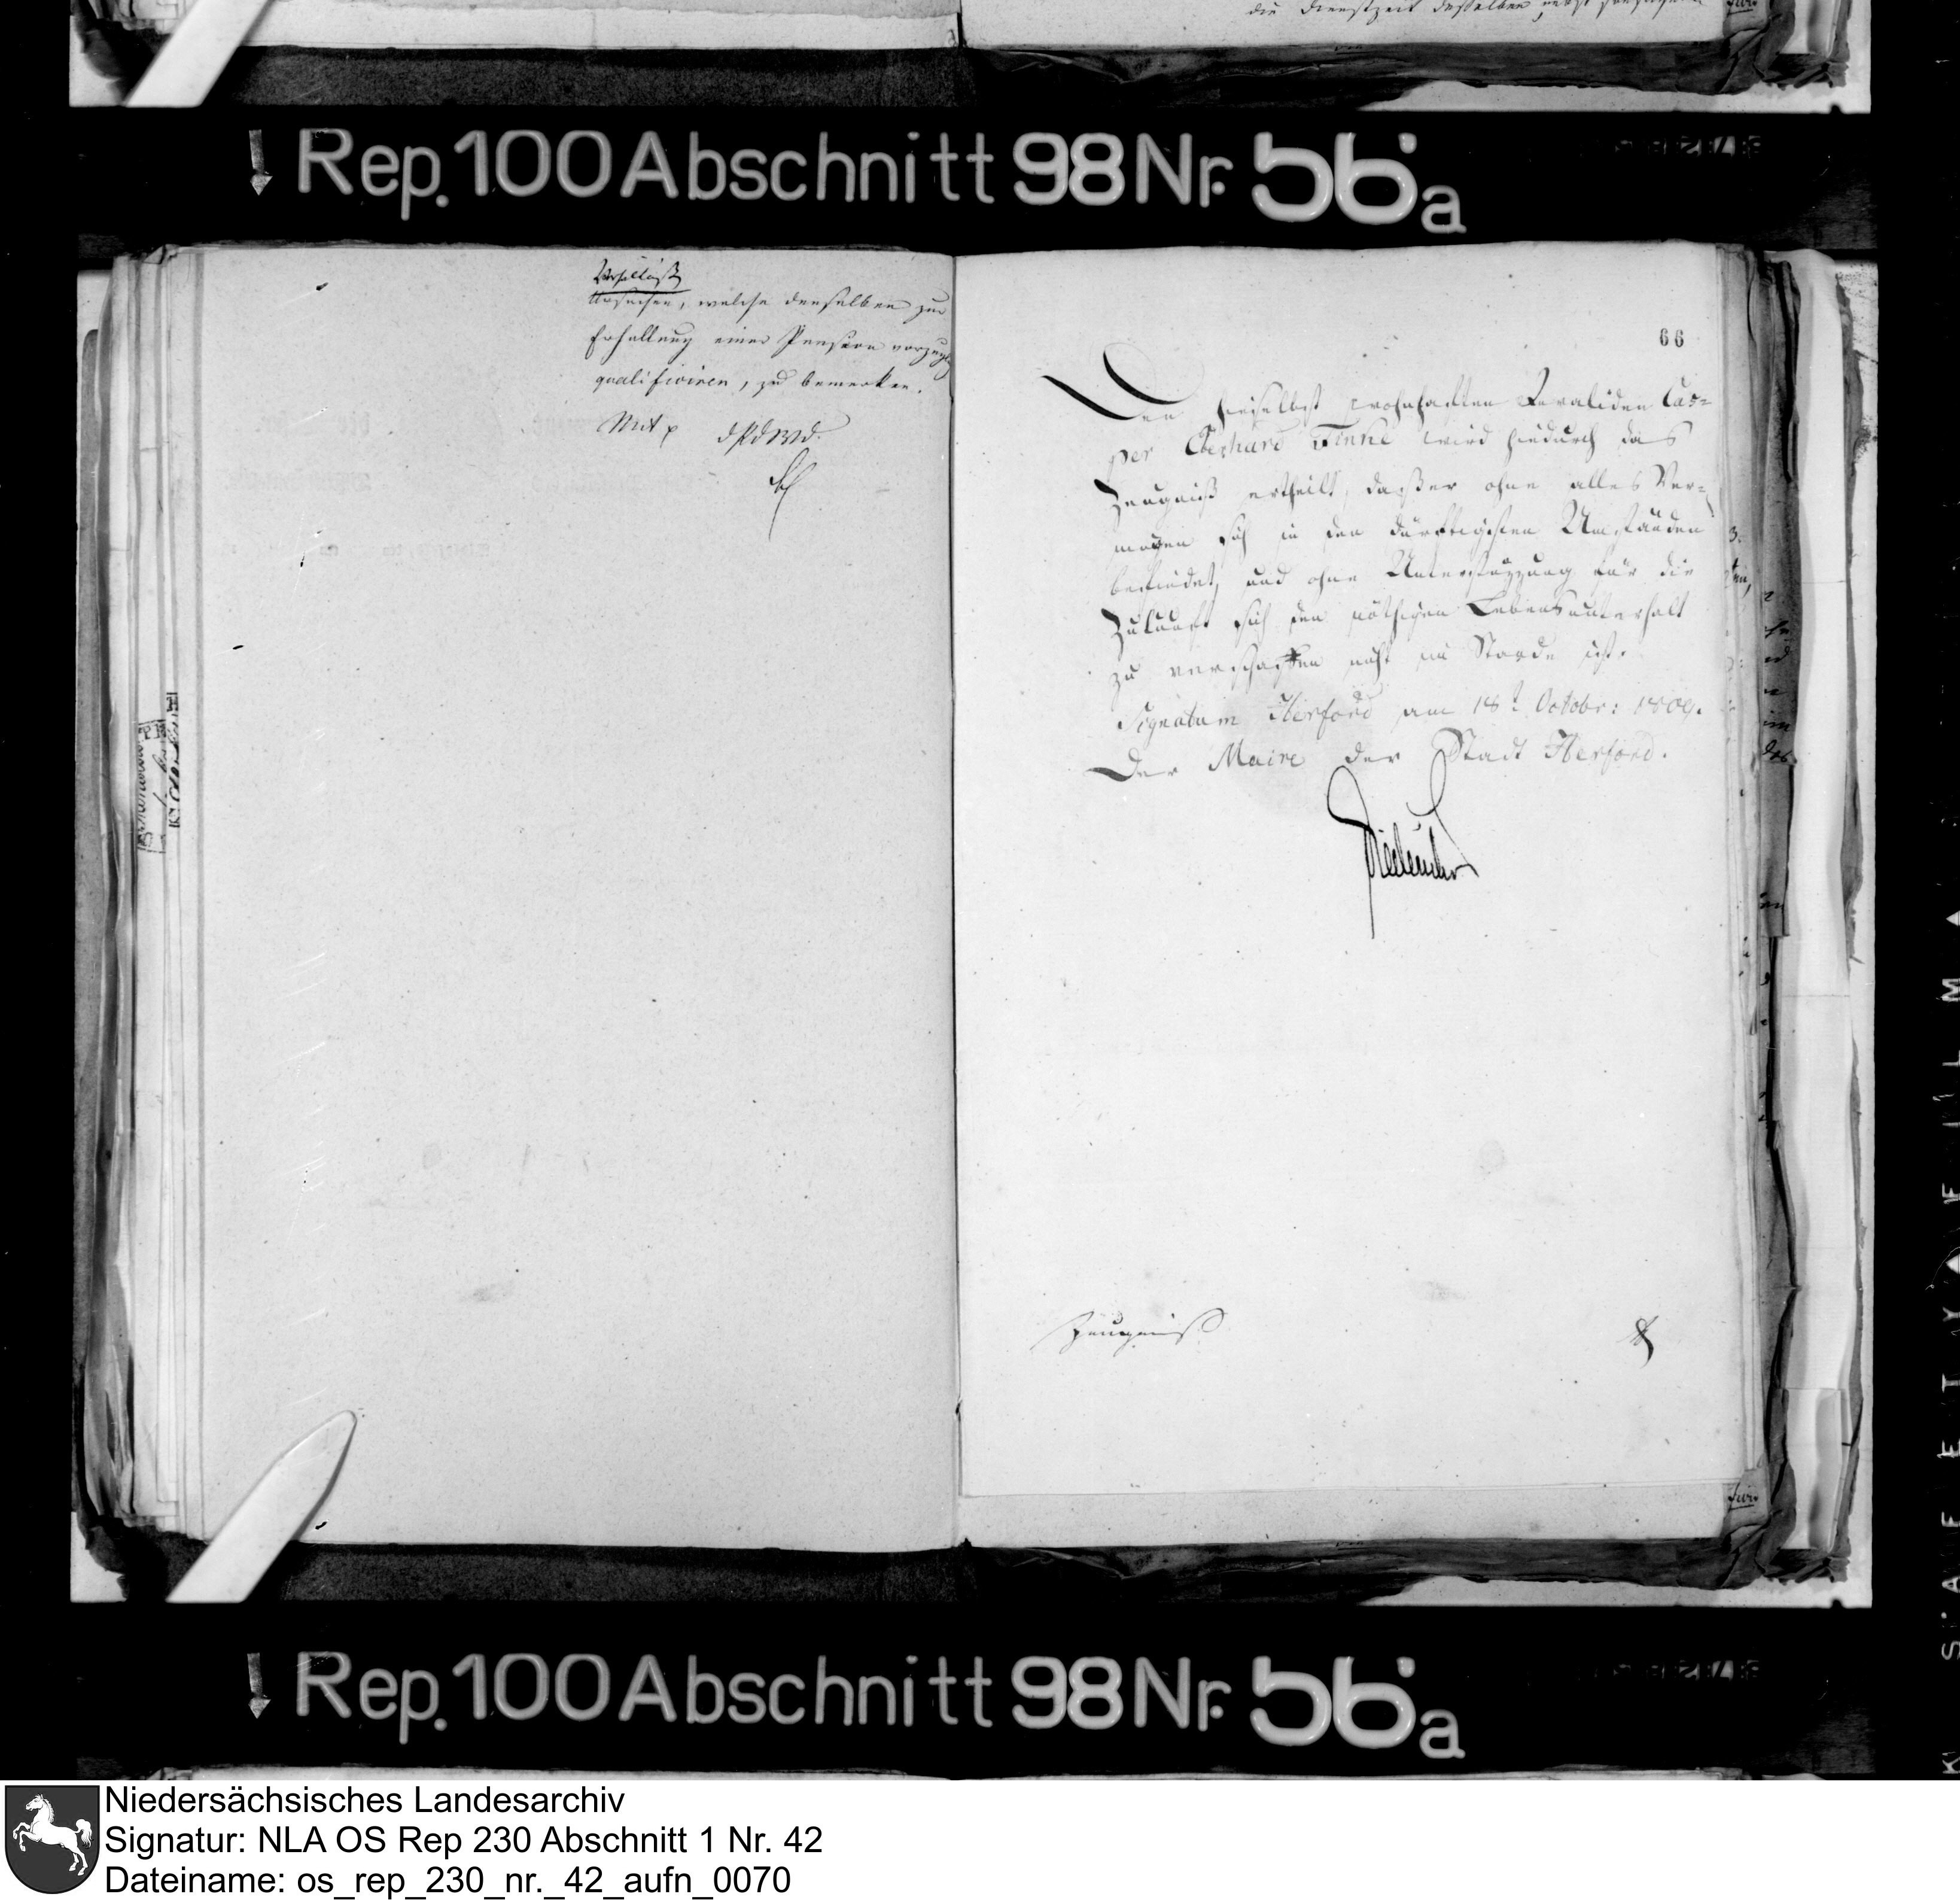 die Dienstzeit desselben, nebst
Rep. 100 Abschnitt 98 Nr. 56a
Ursachen, welche denselben zur
Erhaltung einer Pension vorzüglich
qualificiren, zu bemerken.
66
Den hieselbst wohnhaften Invaliden Cas=
per Eberhard Finke wird hiedurch das
Zeugniß ertheilt, daß er ohne alles Ver=
mögen sich in den dürftigsten Umständen
befindet, und ohne Unterstüzzung für die
Zukunft sich den nöthigen Lebensunterhalt
zu verschaffen nicht im Stande ist.
Signatum Herford am 18t Octobr: 1809.
Der Maire der Stadt Herford.
Zeugniß
Rep. 100 Abschnitt 98 Nr. 56a
Niedersächsisches Landesarchiv
Signatur: NLA OS Rep 230 Abschnitt 1 Nr. 42
Dateiname: os_rep_230_nr._42_aufn_0070